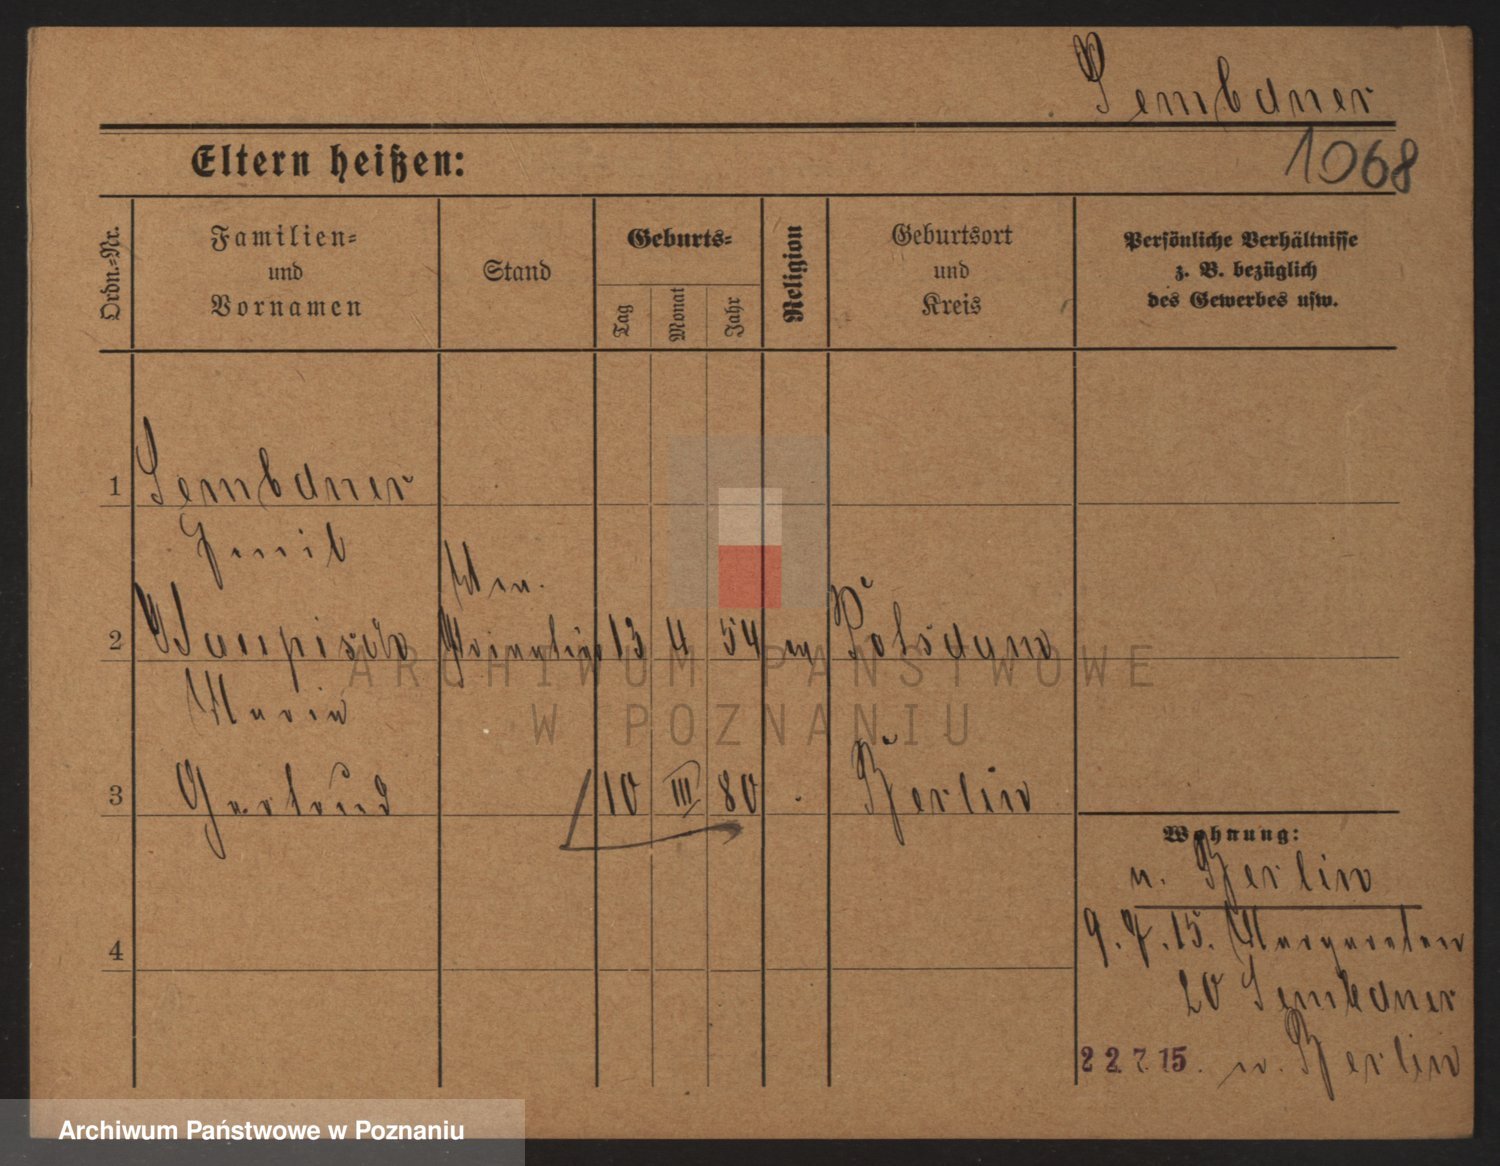 Sembdner
1068
Eltern heißen:
Ordn.=Nr.
Familien=
und
Vornamen
Stand
Geburts=
Tag
Monat
Jahr
Religion
Geburtsort
und
Kreis
Persönliche Verhältnisse
z. B. bezüglich
des Gewerbes usw.
1
Sembdner
Emil
2
13 4 54 ev Potsdam
Maria
3 Gertrud 10 III 80 Berlin
Wohnung:
n. Berlin
9.7.15. Margareten
20 Sembdner
4
22.7.15. n. Berlin
ARCHIWUM PAŃSTWOWE
W POZNANIU
Archiwum Państwowe w Poznaniu